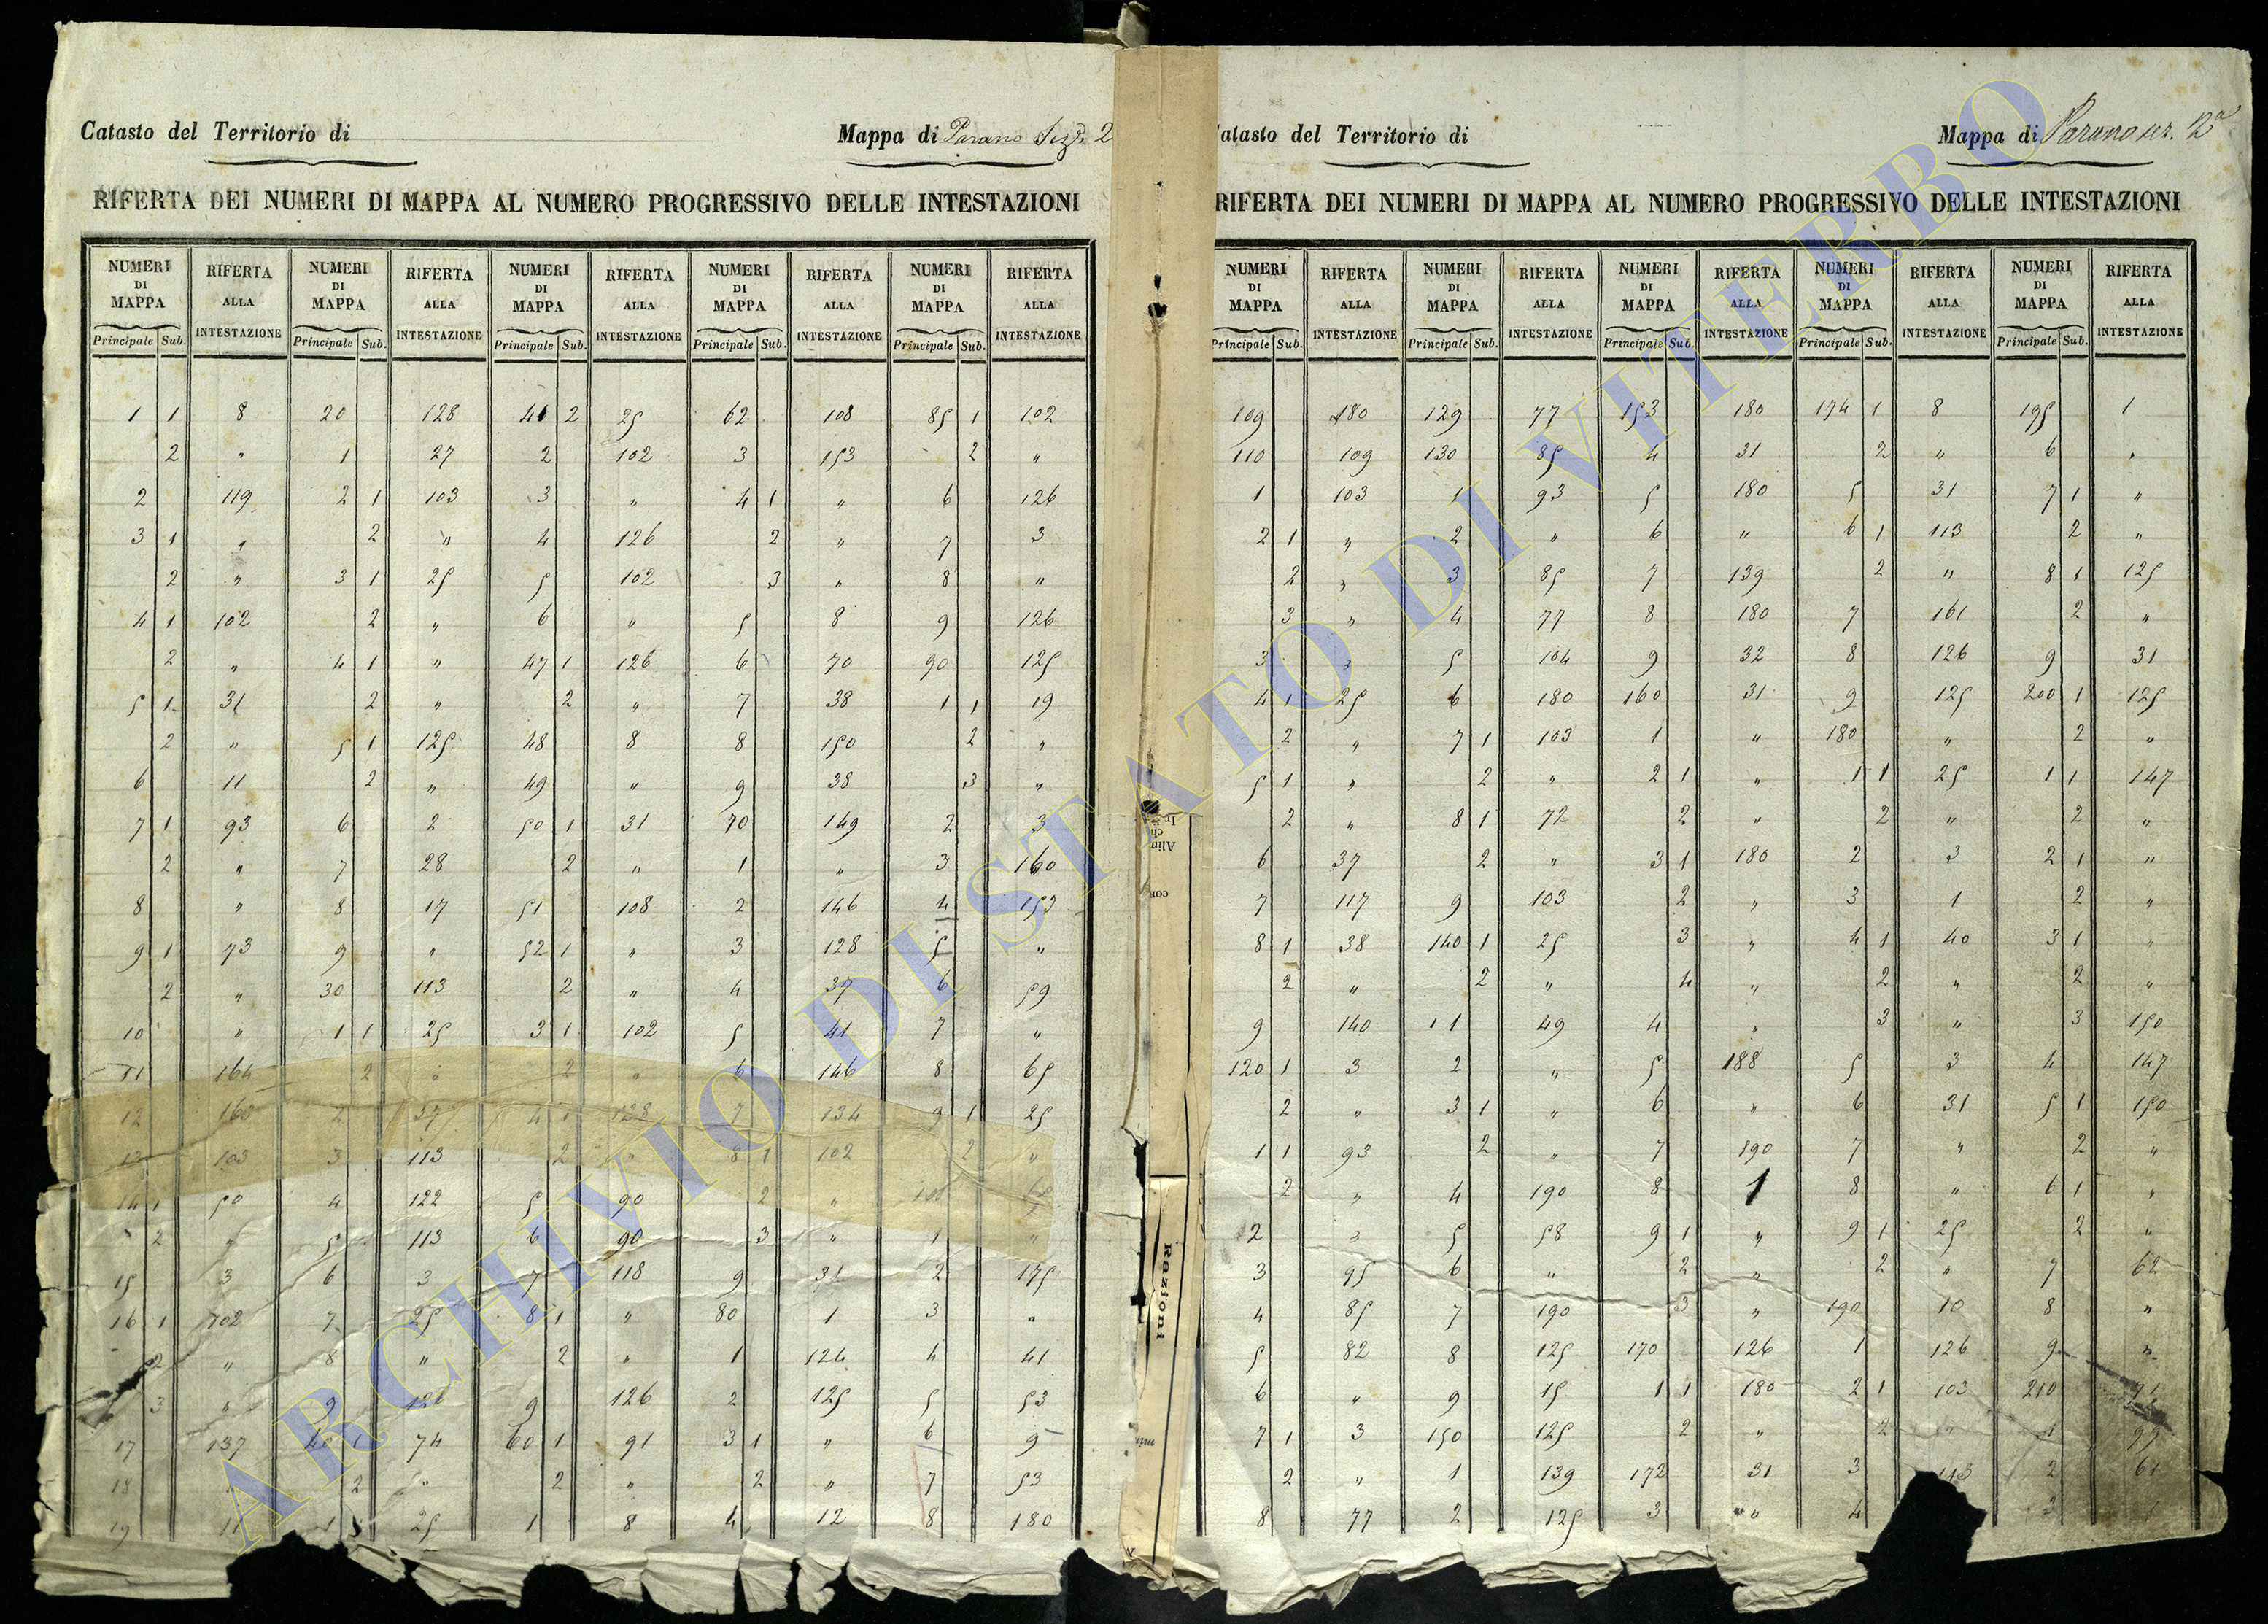 Catasto del Territorio di
Mappa di Parano Sez. 2
RIFERTA DEI NUMERI DI MAPPA AL NUMERO PROGRESSIVO DELLE INTESTAZIONI
NUMERI DI MAPPA RIFERTA ALLA INTESTAZIONE NUMERI DI MAPPA RIFERTA ALLA INTESTAZIONE NUMERI DI MAPPA RIFERTA ALLA INTESTAZIONE NUMERI DI MAPPA RIFERTA ALLA INTESTAZIONE NUMERI DI MAPPA RIFERTA ALLA INTESTAZIONE
Principale Sub. Principale Sub. Principale Sub. Principale Sub. Principale Sub.
1 1 8 20 128 41 2 25 62 108 85 1 102
2 " 1 27 2 102 3 153 2 "
2 119 2 1 103 3 " 4 1 " 6 126
3 1 " 2 " 4 126 2 " 7 3
2 " 3 1 25 5 102 3 " 8 "
4 1 102 2 " 6 " 5 8 9 126
2 " 4 1 " 47 1 126 6 70 90 125
5 1 31 2 " 2 " 7 38 1 1 19
2 " 5 1 125 48 8 8 150 2 "
6 11 2 " 49 " 9 38 3 "
7 1 93 6 2 50 1 31 70 149 2 3
2 " 7 28 2 " 1 " 3 160
8 " 8 17 51 108 2 146 4 153
9 1 73 9 " 52 1 " 3 128 5 "
2 " 30 113 2 " 4 37 6 59
10 " 1 1 25 3 1 102 5 41 7 "
11 164 2 " 2 " 6 146 8 65
12 160 2 37 4 1 128 7 134 9 1 25
13 103 3 113 2 " 8 1 102 2 "
14 1 50 4 122 5 90 2 " 100
2 " 5 113 6 90 3 " 1 "
15 3 6 3 7 118 9 31 2 175
16 1 102 7 25 8 1 " 80 1 3 "
2 " 8 " 2 " 1 124 4 41
3 " 9 126 9 126 2 125 5 53
17 137 40 1 74 60 1 91 3 1 " 6 9
18 2 " 2 " 2 " 7 53
19 11 1 25 1 8 4 12 8 180
Catasto del Territorio di
Mappa di Parano sez. 2a
RIFERTA DEI NUMERI DI MAPPA AL NUMERO PROGRESSIVO DELLE INTESTAZIONI
NUMERI DI MAPPA RIFERTA ALLA INTESTAZIONE NUMERI DI MAPPA RIFERTA ALLA INTESTAZIONE NUMERI DI MAPPA RIFERTA ALLA INTESTAZIONE NUMERI DI MAPPA RIFERTA ALLA INTESTAZIONE NUMERI DI MAPPA RIFERTA ALLA INTESTAZIONE
Principale Sub. Principale Sub. Principale Sub. Principale Sub. Principale Sub.
109 180 129 77 153 180 174 1 8 195 1
110 109 130 85 4 31 2 " 6 "
1 103 1 93 5 180 5 31 7 1 "
2 1 " 2 " 6 " 6 1 113 2 "
2 " 3 85 7 139 2 " 8 1 125
3 " 4 77 8 180 7 161 2 "
3 " 5 104 9 32 8 126 9 31
4 1 25 6 180 160 31 9 125 200 1 125
2 " 7 1 103 1 " 180 " 2 "
5 1 " 2 " 2 1 " 1 1 25 1 1 147
2 " 8 1 72 2 " 2 " 2 "
6 37 2 " 3 1 180 2 3 2 1 "
7 117 9 103 2 " 3 1 2 "
8 1 38 140 1 25 3 " 4 1 40 3 1 "
2 " 2 " 4 " 2 " 2 "
9 140 1 1 49 4 " 3 " 3 150
120 1 3 2 " 5 188 5 3 4 147
2 " 3 1 " 6 " 6 31 5 1 150
1 1 93 2 " 7 190 7 " 2 "
2 " 4 190 8 1 8 " 6 1 "
2 " 5 58 9 1 " 9 1 25 2 "
3 95 6 " 2 " 2 " 7 62
4 85 7 190 3 " 190 10 8 "
5 82 8 125 170 126 1 126 9 "
6 " 9 15 1 1 180 2 1 103 210 71
7 1 3 150 125 2 " 2 " 1 99
2 " 1 139 172 31 3 113 2 61
8 77 2 125 3 " 4 3
Razioni
ARCHIVIO DI STATO DI VITERBO